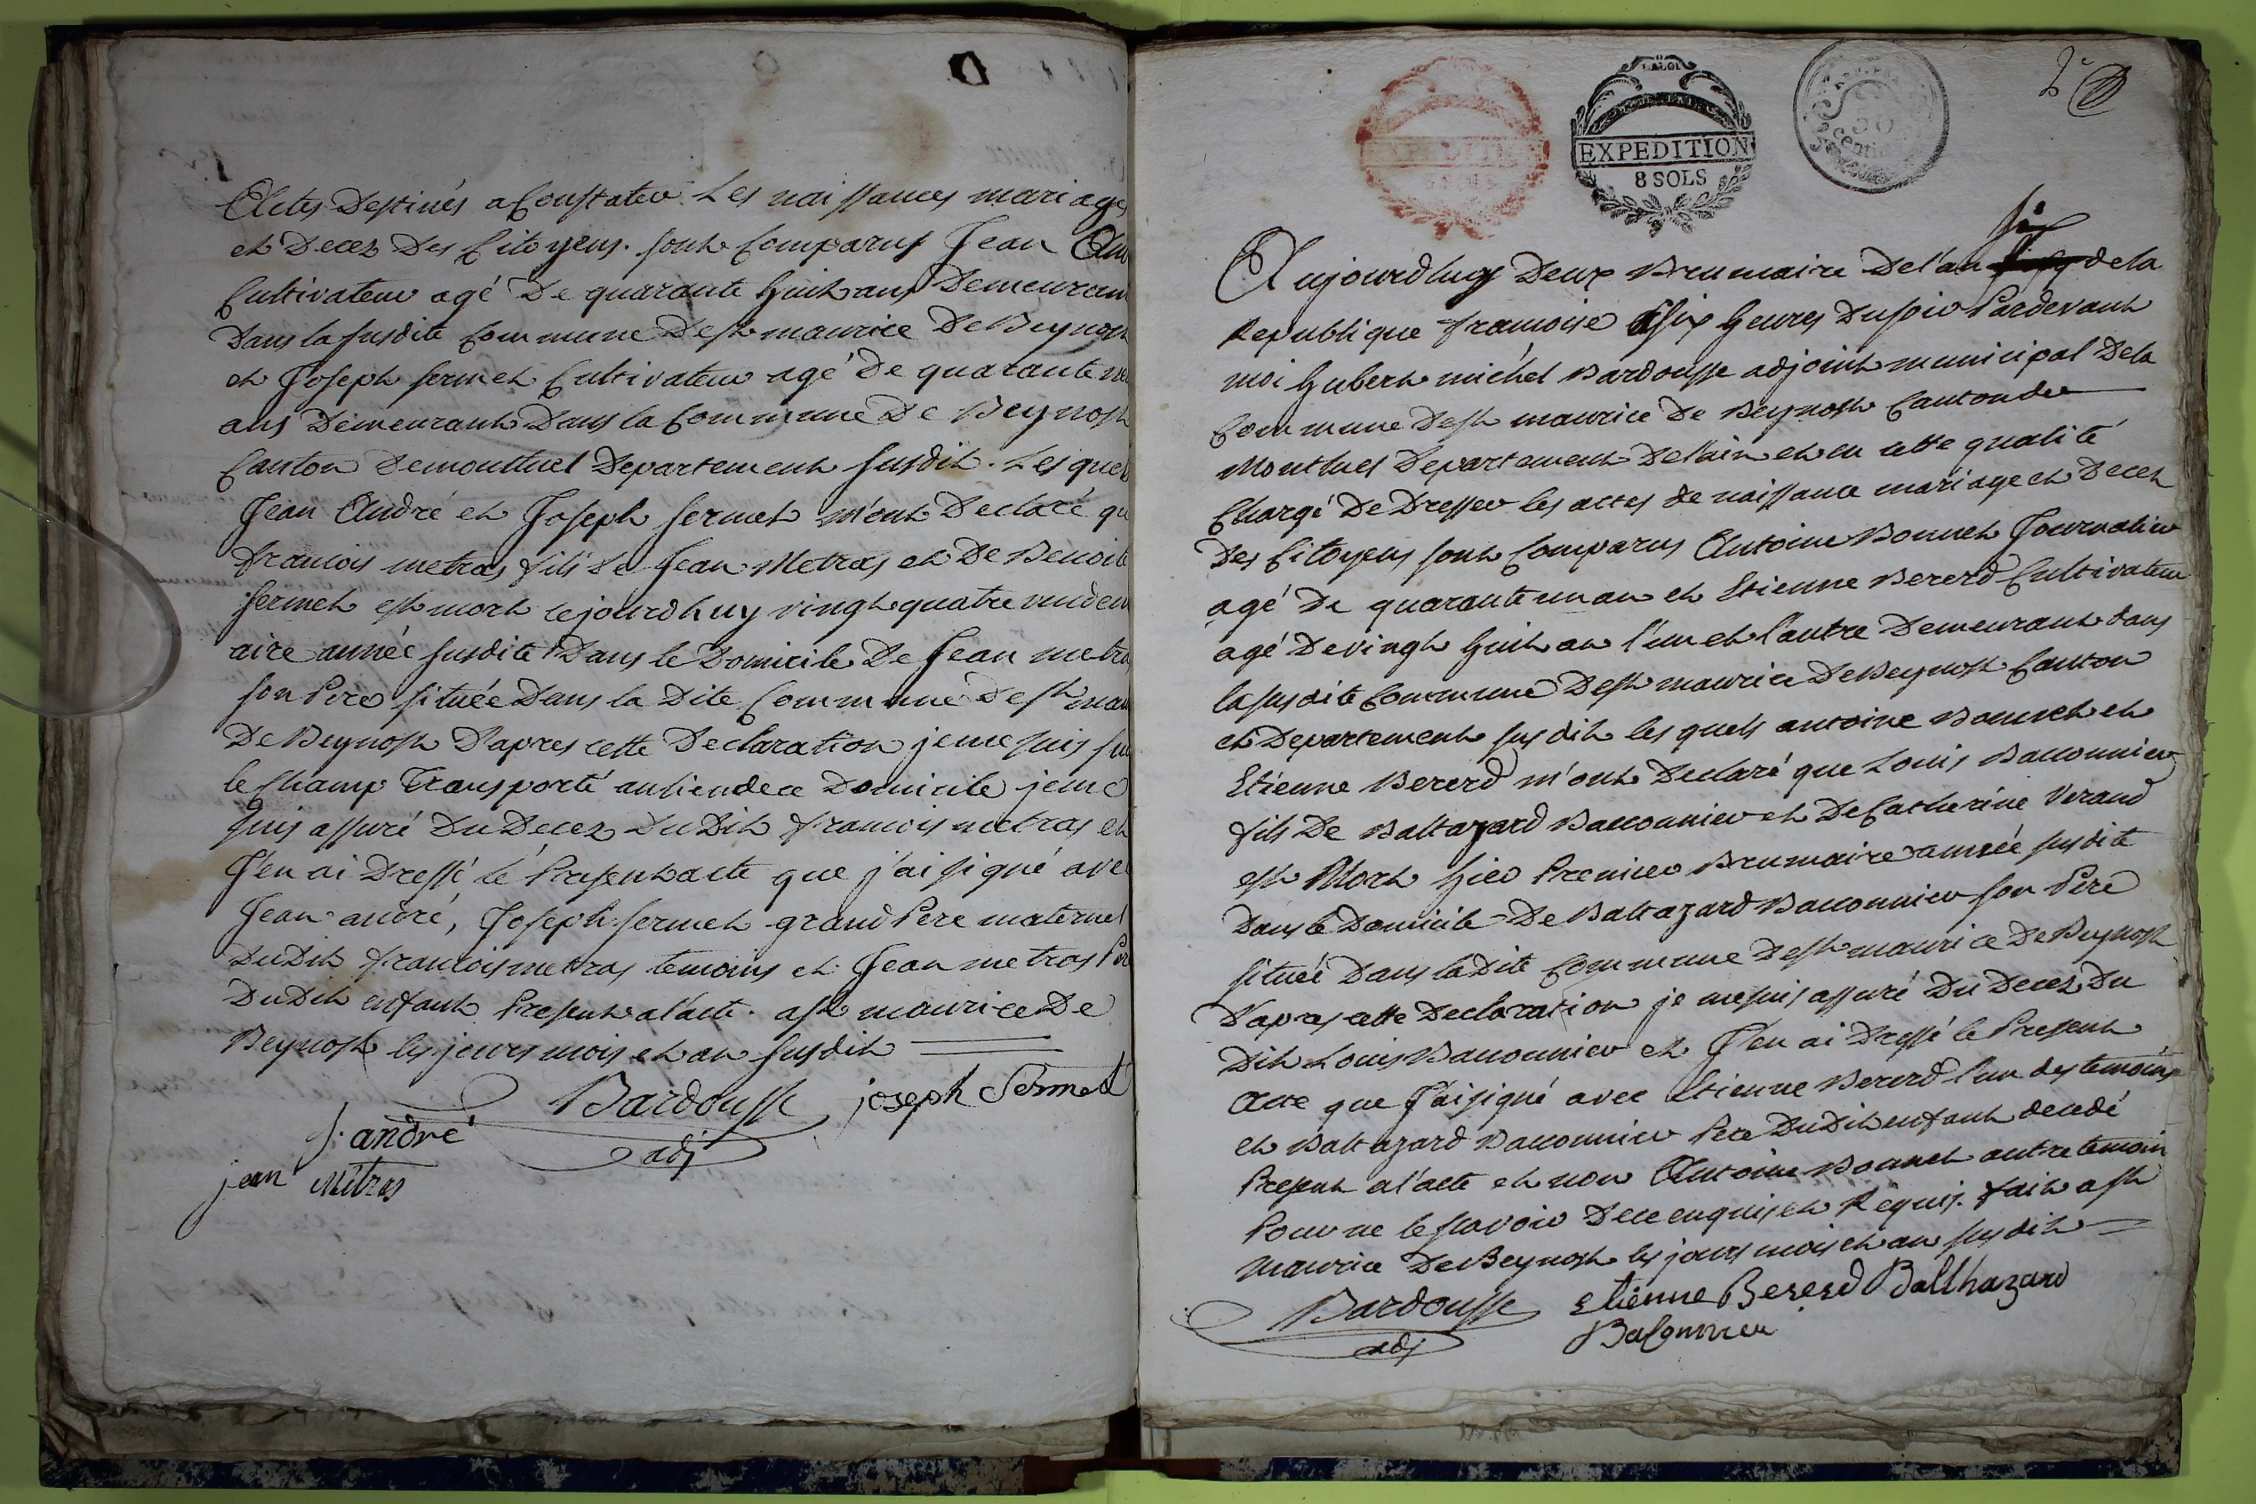 Actes Destinés a Constater Les naissances mariages
et Decez Des Citoyens. sont Comparus Jean An
Cultivateur agé De quarante huit ans Demeuran
Dans la susdite Commune De st maurice De Beynost
et Joseph sermet Cultivateur agé De quarante ne
ans Demeurant Dans la Commune De Beynost
Canton De montluel Departement susdit. Les quel
Jean André et Joseph sermet m'ont Declaré qu
francois metras fils de Jean Metras et De Benoite
sermet est mort cejourdhuy vingt quatre vendem
aire année susdite Dans le Domicile De Jean metra
son Pere située Dans la Dite Commune De st mau
De Beynost D'apres cette Declaration je me suis su
le Champ Transporté au lieu de ce Domicile je me
suis assuré Du Decez Du Dit francois metras et
J'en ai Dressé le Present acte que j'ai signé ave
Jean andré, Joseph sermet grand Pere maternel
Du Dit francois metras temoins et Jean metras Per
Du Dit enfant Present a l'acte. a st maurice De
Beynost les jours mois et an susdit
Bardousse joseph Sermet
J. andré adj
jean Métras
2e
LA LOI
EXPEDITION
8 SOLS
50
centi
six
Aujourdhuy Deux Brumaire De l'an de la
Republique francoise a six heures Du soir Pardevant
moi hubert michel Bardousse adjoint municipal De la
Commune De st maurice De Beynost Canton de
Montluel Departement De l'ain et en cette qualité
Chargé De Dresser les actes de naissance mariage et Decez
Des Citoyens sont Comparus Antoine Bonnet Journalier
agé De quarante un an et Etienne Bererd Cultivateur
agé De vingt huit an l'un et l'autre Demeurant dans
la susdite Commune De st maurice De Beynost Canton
et Departement susdit les quels antoine Bonnet et
Etienne Bererd m'ont Declaré que Louis Baconnier
fils De Baltazard Baconnier et De Catherine Verand
est Mort hier Premier Brumaire année susdite
Dans le Domicile De Baltazard Baconnier son Pere
située Dans la Dite Commune De st maurice De Beynost
D'apres cette Declaration je me suis assuré Du Decez Du
Dit Louis Baconnier et J'en ai Dressé le Present
Acte que J'ai signé avec Etienne Bererd l'un des temoins
et Baltazard Baconnier Pere Du Dit enfant decedé
Present a l'acte et non Antoine Bonnet autre temoin
Pour ne le scavoir De ce enquis et Requis. fait a st
Maurice De Beynost les jours mois et an susdit
Bardousse etienne Bererd Balthazard
adj Baconnier